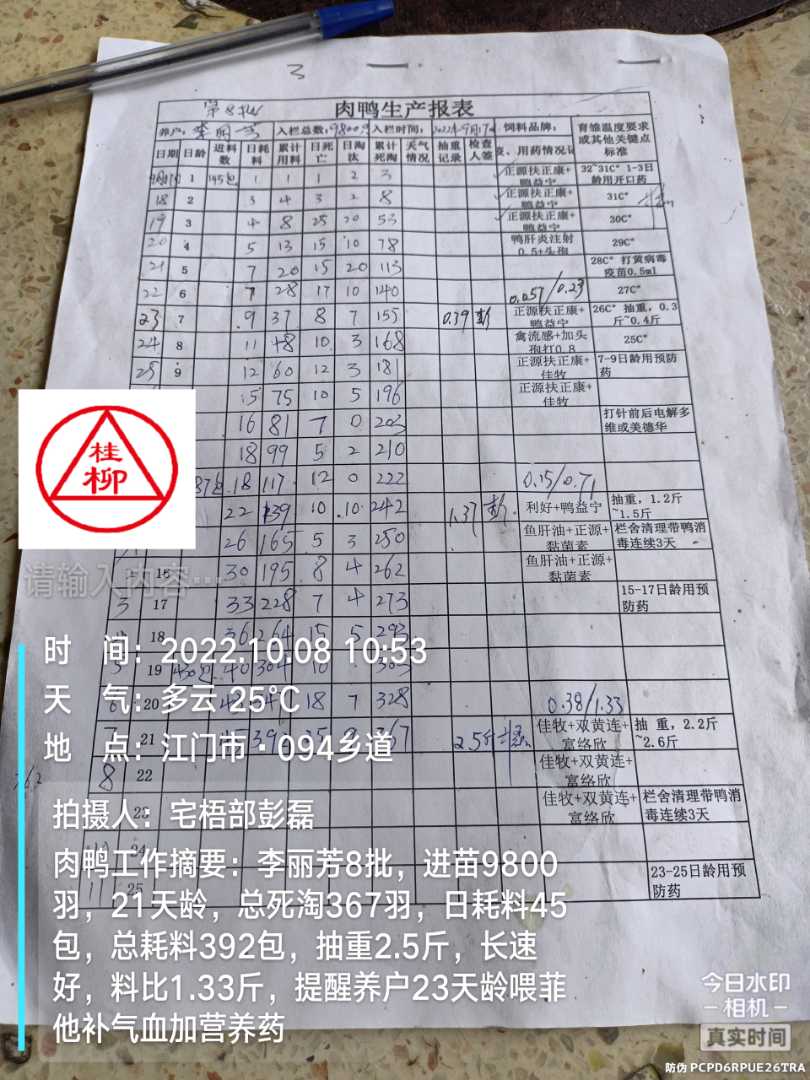 3
第8批
肉鸭生产报表
养户: 入栏总数:9800 入栏时间:2022年9月17 饲料品牌: 育雏温度要求或其他关键点标准
日期 日龄 进料数 日耗料 累计用料 日死亡 日淘汰 累计死淘 天气情况 抽重记录 检查人签 疫、用药情况记
1 145包 1 1 1 2 3 正源扶正康+鸭益宁 32~31C° 1-3日龄用开口药
18 2 3 4 3 2 8 正源扶正康+鸭益宁 31C°
19 3 4 8 25 20 53 正源扶正康+鸭益宁 30C°
20 4 5 13 15 10 78 鸭肝炎注射0.5+头孢 29C°
21 5 7 20 15 20 113 28C° 打黄病毒疫苗0.5ml
22 6 7 28 17 10 140 0.057/0.23 27C°
23 7 9 37 8 7 155 0.39 彭 正源扶正康+鸭益宁 26C° 抽重,0.3斤~0.4斤
24 8 11 48 10 3 168 禽流感+加头孢打0.8 25C°
25 9 12 60 12 3 181 正源扶正康+佳牧 7-9日龄用预防药
15 75 10 5 196 正源扶正康+佳牧
16 81 7 0 203 打针前后电解多维或美德华
18 99 5 2 210
87包 18 117 12 0 222 0.15/0.71
22 139 10 10 242 1.37 彭 利好+鸭益宁 抽重,1.2斤~1.5斤
26 165 5 3 250 鱼肝油+正源+黏菌素 栏舍清理带鸭消毒连续3天
16 30 195 8 4 262 鱼肝油+正源+黏菌素
3 17 33 228 7 4 273 15-17日龄用预防药
18 36 264 15 5 293
5 19 40 304 10 303
6 20 18 7 328 0.38/1.33
7 21 392 367 2.5斤 佳牧+双黄连+富络欣 抽 重,2.2斤~2.6斤
8 22 佳牧+双黄连+富络欣
23 佳牧+双黄连+富络欣 栏舍清理带鸭消毒连续3天
24
11 25 23-25日龄用预防药
桂柳
请输入内容...
时 间:2022.10.08 10:53
天 气:多云 25℃
地 点:江门市·094乡道
拍摄人:宅梧部彭磊
肉鸭工作摘要:李丽芳8批,进苗9800
羽,21天龄,总死淘367羽,日耗料45
包,总耗料392包,抽重2.5斤,长速
好,料比1.33斤,提醒养户23天龄喂菲
他补气血加营养药
今日水印
相机
真实时间
防伪 PCPD6RPUE26TRA